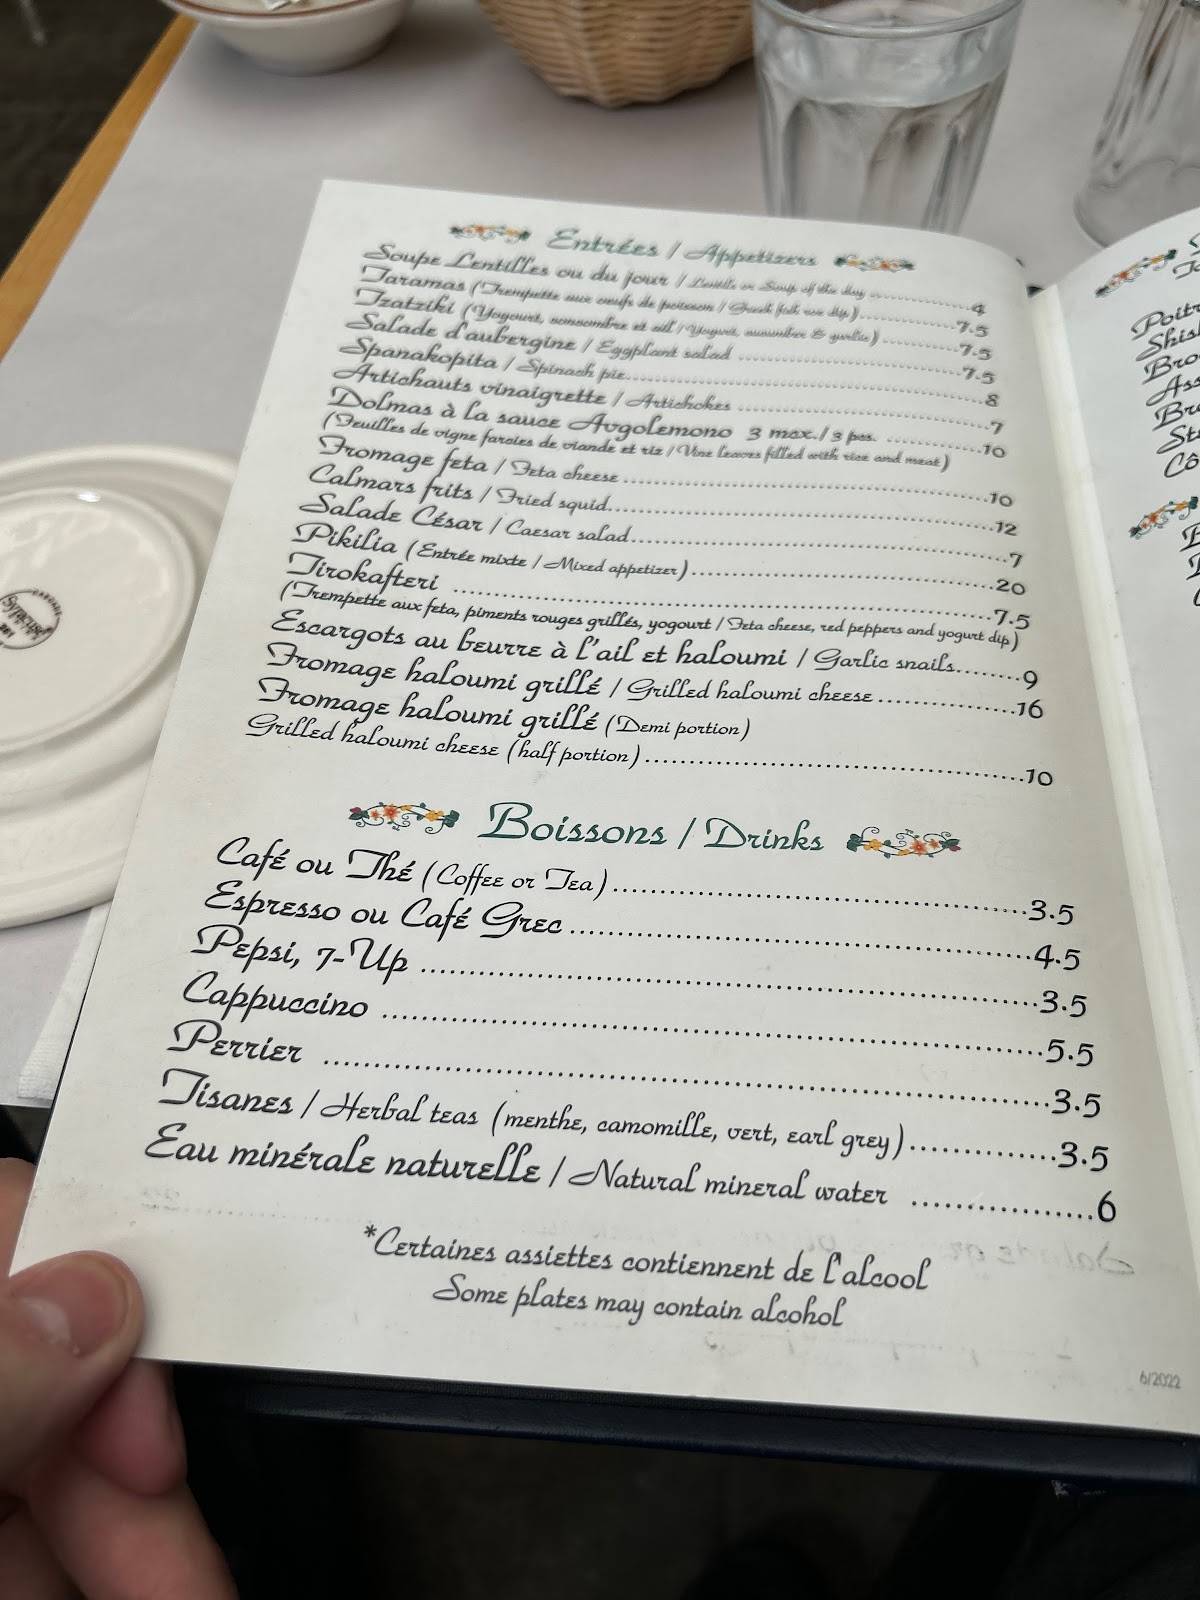 Entrées / Appetizers
Soupe Lentilles ou du jour / Lentils or Soup of the day ........ 4
Taramas (Trempette aux oeufs de poisson / Greek fish roe dip) ........ 7.5
Tzatziki (Yogourt, concombre et ail / Yogurt, cucumber & garlic) ........ 7.5
Salade d'aubergine / Eggplant salad ........ 7.5
Spanakopita / Spinach pie ........ 8
Artichauts vinaigrette / Artichokes ........ 7
Dolmas à la sauce Avgolemono 3 mcx./3 pcs. ........ 10
(Feuilles de vigne farcies de viande et riz / Vine leaves filled with rice and meat)
Fromage feta / Feta cheese ........ 10
Calmars frits / Fried squid ........ 12
Salade César / Caesar salad ........ 7
Pikilia (Entrée mixte / Mixed appetizer) ........ 20
Tirokafteri ........ 7.5
(Trempette aux feta, piments rouges grillés, yogourt / Feta cheese, red peppers and yogurt dip)
Escargots au beurre à l'ail et haloumi / Garlic snails ........ 9
Fromage haloumi grillé / Grilled haloumi cheese ........ 16
Fromage haloumi grillé (Demi portion)
Grilled haloumi cheese (half portion) ........ 10
Boissons / Drinks
Café ou Thé (Coffee or Tea) ........ 3.5
Espresso ou Café Grec ........ 4.5
Pepsi, 7-Up ........ 3.5
Cappuccino ........ 5.5
Perrier ........ 3.5
Tisanes / Herbal teas (menthe, camomille, vert, earl grey) ........ 3.5
Eau minérale naturelle / Natural mineral water ........ 6
*Certaines assiettes contiennent de l'alcool
Some plates may contain alcohol
6/2022
Poitr
Shis
Bro
Ass
Br
St
Cô
Syracuse